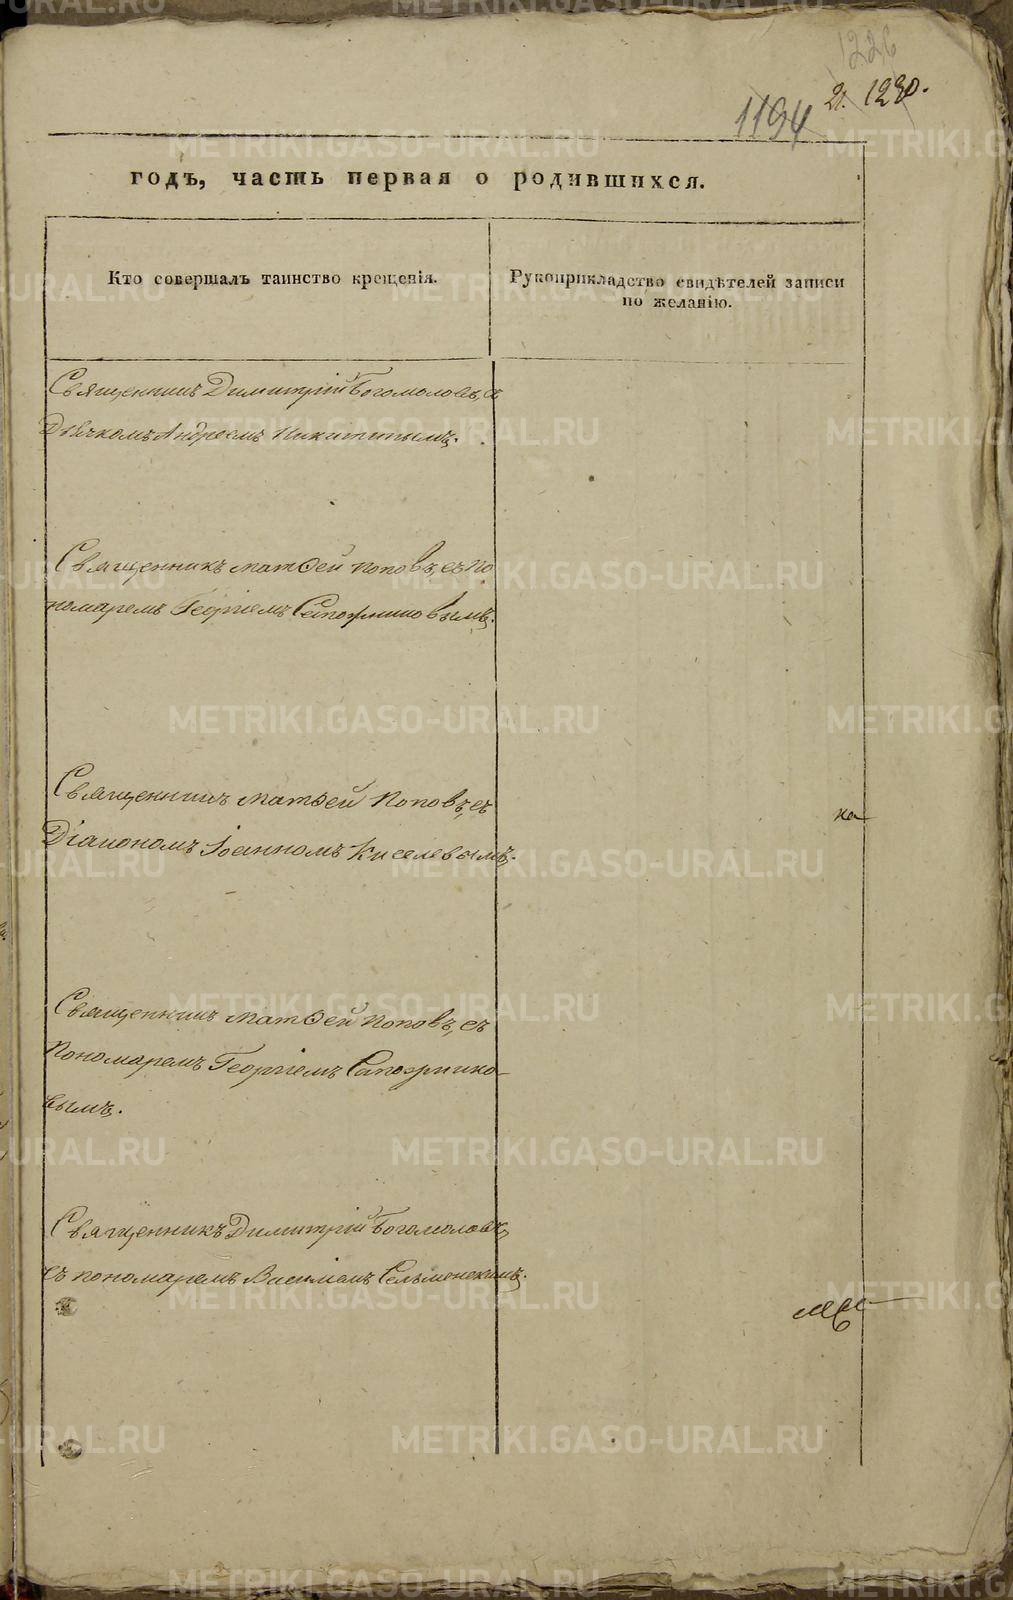 1226
1194 21. 1230.
годъ, часть первая о родившихся.
Кто совершалъ таинство крещенія.
Рукоприкладство свидѣтелей записи
по желанію.
Священникъ Димитрій Богомоловъ, съ
Дьячкомъ Андреемъ Никитинымъ.
Священникъ Матѳей Поповъ, съ По
номаремъ Георгіемъ Сапожниковымъ.
Священникъ Матѳей Поповъ, съ
Діакономъ Іоанномъ Киселевымъ.
на
Священникъ Матѳей Поповъ, съ
Пономаремъ Георгіемъ Сапожнико-
вымъ.
Священникъ Димитрій Богомоловъ,
съ пономаремъ Василіемъ Сельменскимъ.
METRIKI.GASO-URAL.RU